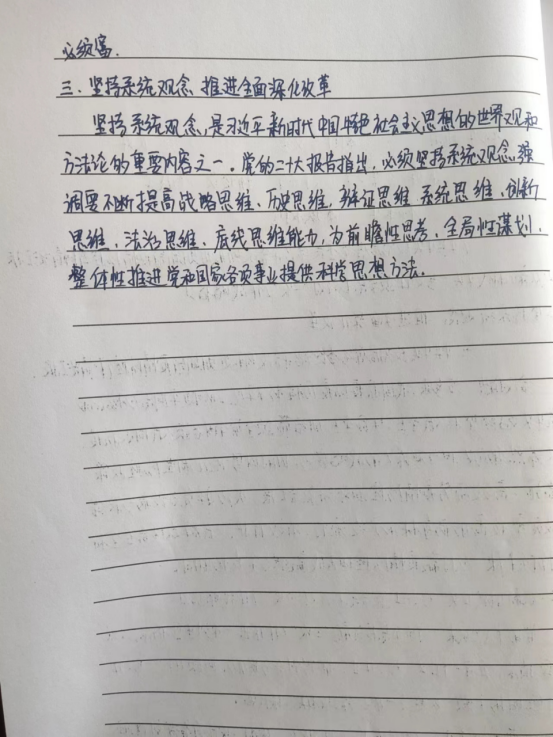 必须富.
三、坚持系统观念 推进全面深化改革
坚持系统观念,是习近平新时代中国特色社会主义思想的世界观和
方法论的重要内容之一。党的二十大报告指出,必须坚持系统观念,强
调要不断提高战略思维、历史思维、辩证思维、系统思维、创新
思维、法治思维、底线思维能力,为前瞻性思考、全局性谋划、
整体性推进党和国家各项事业提供科学思想方法。